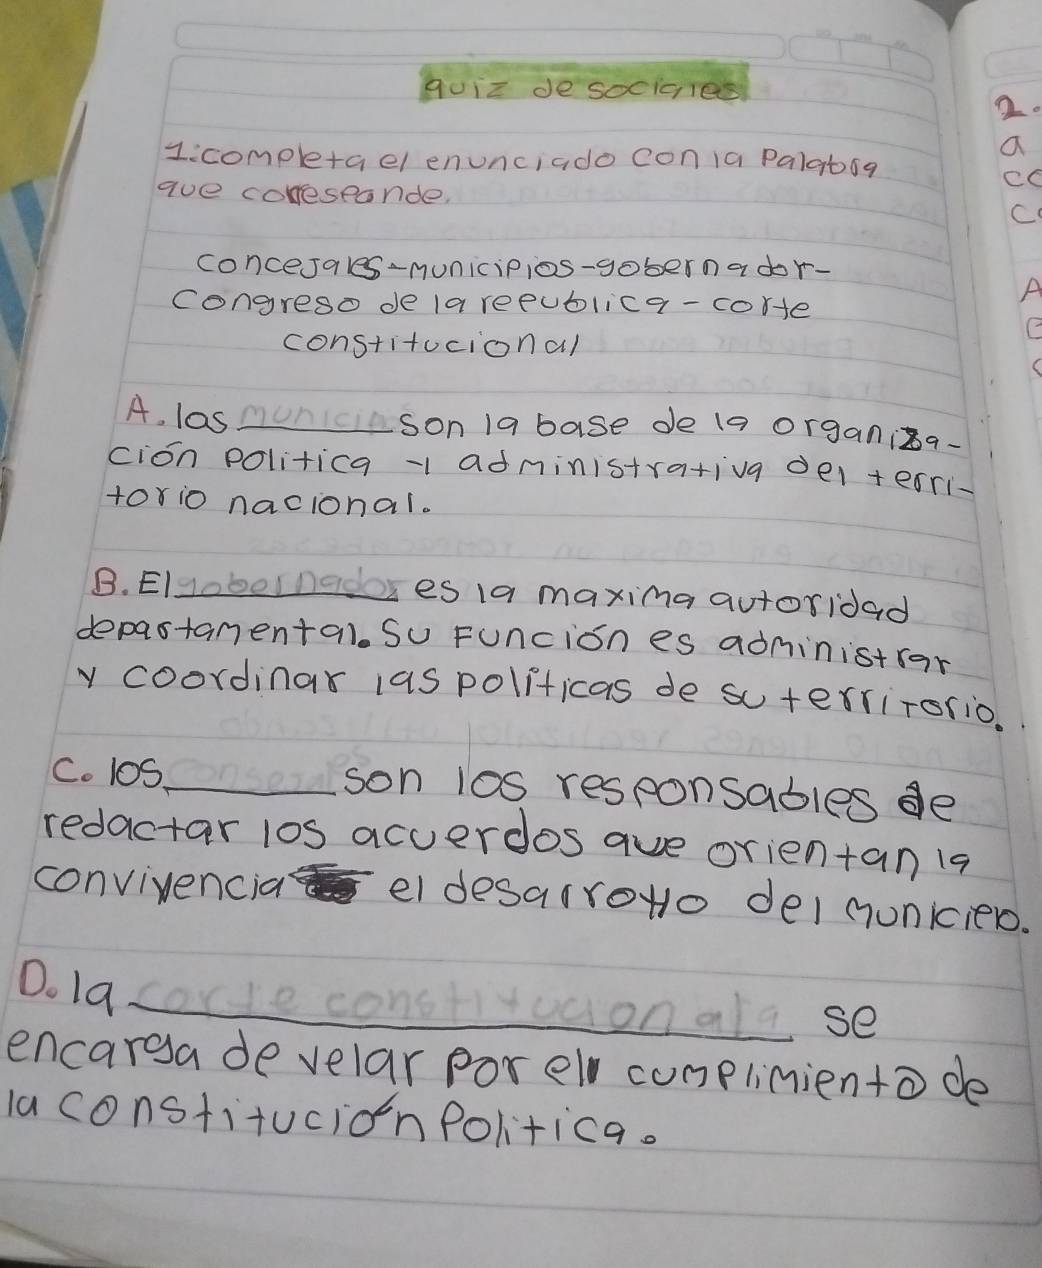 quiz de sociales
1. completa el enunciado con la palabra
que corresponde.
concejales-municipios-gobernador-
congreso de la republica-corte
constitucional
A. las municip son la base de la organiza-
ción politica y administrativa del terri-
torio nacional.
B. El gobernador es la maxima autoridad
departamental. su Función es administrar
y coordinar las políticas de su territorio.
C. los consejales son los responsables de
redactar los acuerdos que orientan la
convivencia el desarrollo del municipio.
D. la corte constitucional se
encarga de velar por el cumplimiento de
la constitución politica.
2.
a
cc
c
A
B
C